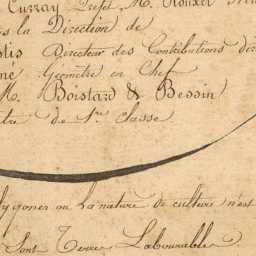 Curray Préfet M.
la Direction de
Directeur des Contributions dir
Géomètre en Chef
M. Boistard & Bessin
tre de 1re Classe
lygones ou la nature de culture n'est
Sont Terres Labourables.